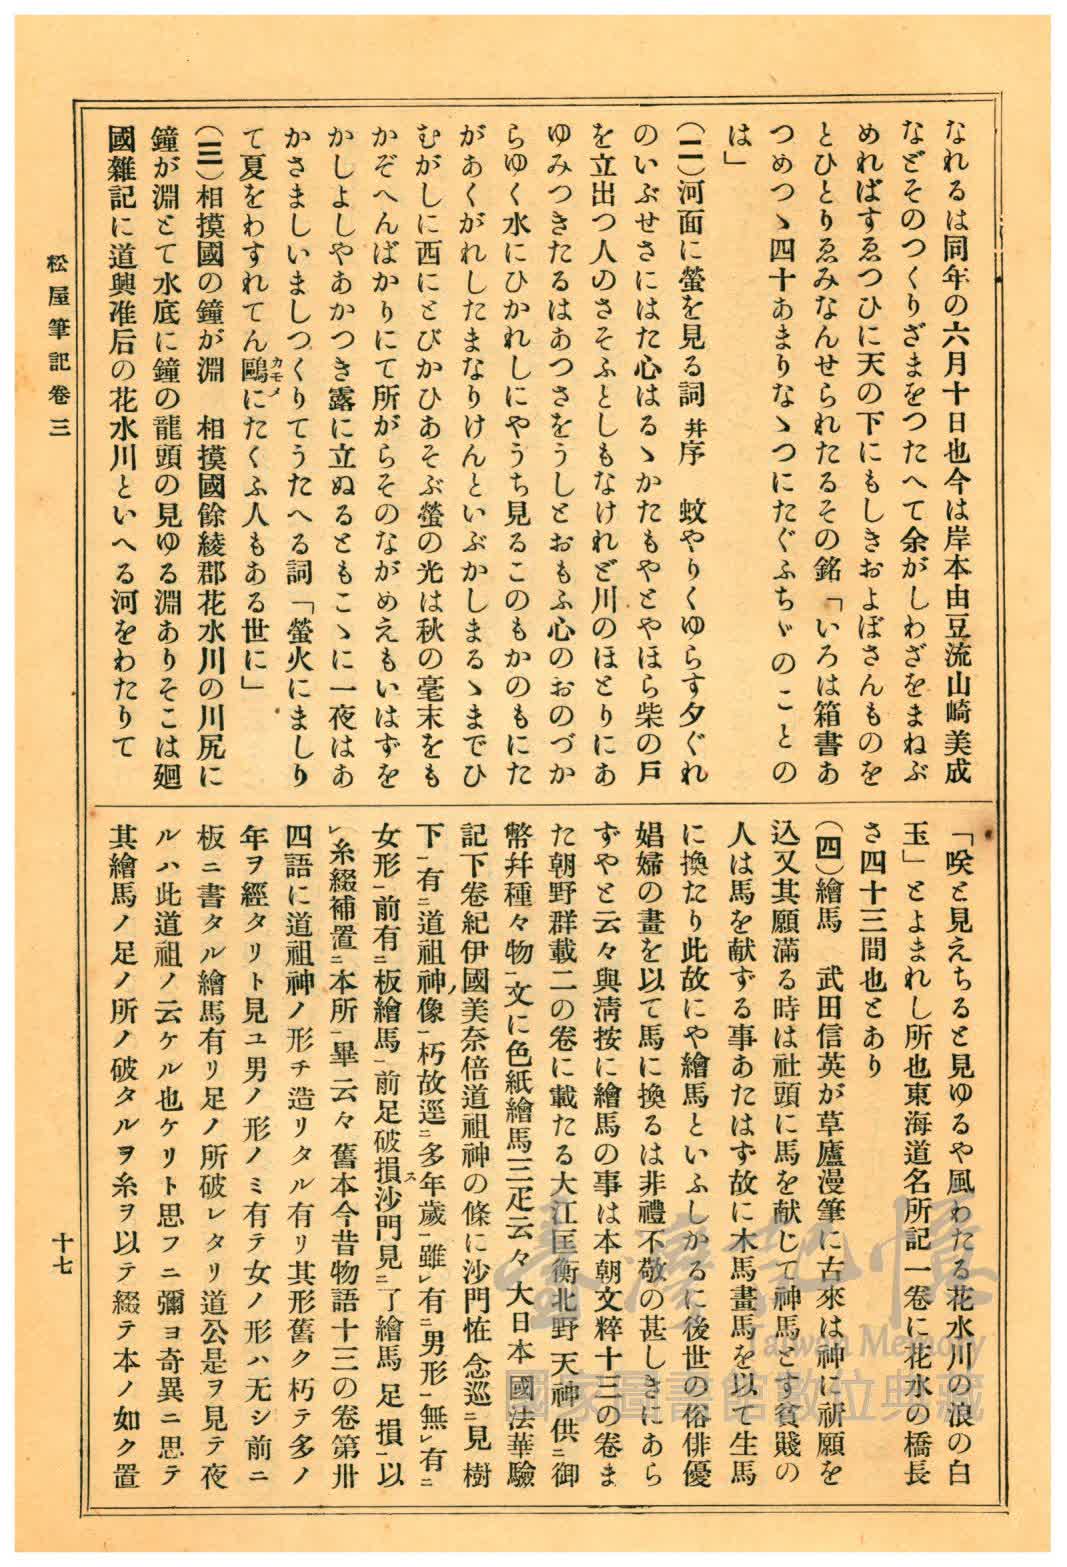 なれるは同年の六月十日也今は岸本由豆流山崎美成
などそのつくりざまをつたへて余がしわざをまねぶ
めればすゑつひに天の下にもしきおよぼさんものを
とひとりゑみなんせられたるその銘「いろは箱書あ
つめつゝ四十あまりなゝつにたぐふちゞのことの
は」
(二)河面に螢を見る詞幷序 蚊やりくゆらす夕ぐれ
のいぶせさにはた心はるゝかたもやとやほら柴の戸
を立出つ人のさそふとしもなけれど川のほとりにあ
ゆみつきたるはあつさをうしとおもふ心のおのづか
らゆく水にひかれしにやうち見るこのもかのもにた
があくがれしたまなりけんといぶかしまるゝまでひ
むがしに西にとびかひあそぶ螢の光は秋の毫末をも
かぞへんばかりにて所がらそのながめえもいはずを
かしよしやあかつき露に立ぬるともこゝに一夜はあ
かさましいましつくりてうたへる詞「螢火にましり
て夏をわすれてん鷗カモメにたくふ人もある世に」
(三)相摸國の鐘が淵 相摸國餘綾郡花水川の川尻に
鐘が淵とて水底に鐘の龍頭の見ゆる淵ありそこは廻
國雜記に道興准后の花水川といへる河をわたりて
「咲と見えちると見ゆるや風わたる花水川の浪の白
玉」とよまれし所也東海道名所記一卷に花水の橋長
さ四十三間也とあり
(四)繪馬 武田信英が草廬漫筆に古來は神に祈願を
込又其願滿る時は社頭に馬を献じて神馬とす貧賤の
人は馬を献ずる事あたはず故に木馬畫馬を以て生馬
に換たり此故にや繪馬といふしかるに後世の俗俳優
娼婦の畫を以て馬に換るは非禮不敬の甚しきにあら
ずやと云々與淸按に繪馬の事は本朝文粹十三の卷ま
た朝野群載二の卷に載たる大江匡衡北野天神供ニ御
幣幷種々物一文に色紙繪馬三疋云々大日本國法華驗
記下卷紀伊國美奈倍道祖神の條に沙門恠ノ念巡ニ見樹
下一有ニ道祖神像一朽故逕ニ多年歲一雖レ有ニ男形一無レ有ニ
女形一前有ニ板繪馬一前足破損ス沙門見ニ了繪馬足損一以
レ糸綴補置ニ本所一畢云々舊本今昔物語十三の卷第卅
四語に道祖神ノ形チ造リタル有リ其形舊ク朽テ多ノ
年ヲ經タリト見ユ男ノ形ノミ有テ女ノ形ハ无シ前ニ
板ニ書タル繪馬有リ足ノ所破レタリ道公是ヲ見テ夜
ルハ此道祖ノ云ケル也ケリト思フニ彌ヨ奇異ニ思テ
其繪馬ノ足ノ所ノ破タルヲ糸ヲ以テ綴テ本ノ如ク置
松屋筆記卷三
十七
臺灣記憶
Taiwan Memory
國家圖書館數位典藏